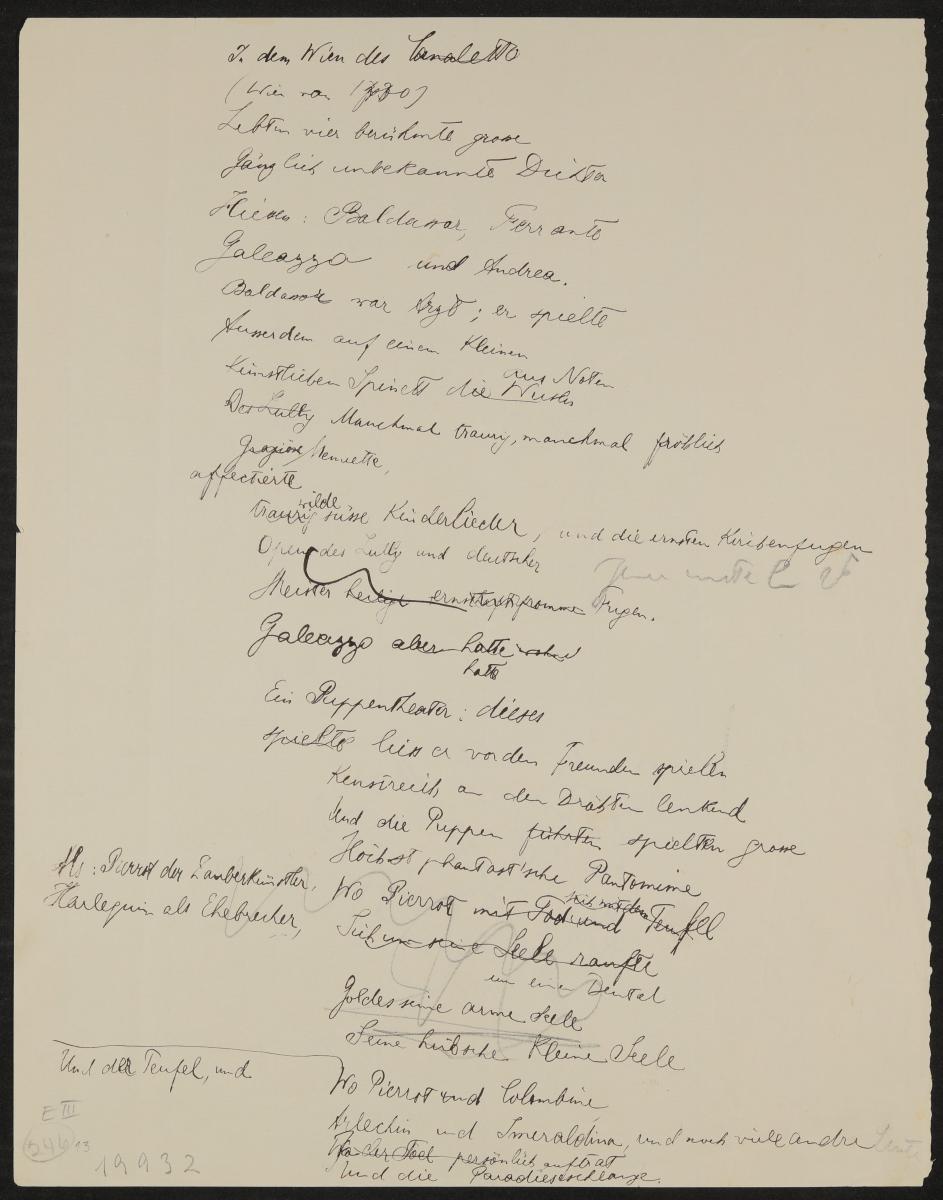 In dem Wien des Canaletto
(Wien von 1780)
Lebten vier berühmte grosse
Gänzlich unbekannte Dichter
Hiessen: Baldassar, Ferrante
Galeazzo und Andrea.
Baldassar war Arzt; er spielte
Ausserdem auf einem kleinen
aus Noten
Künstlichen Spinett die Wuchs
Des Lully Manchmal traurig, manchmal fröhlich
Graziöse Menuette,
affectierte
wilde
traurig süsse Kinderlieder, und die ernsten Kirchenfugen
Opern des Lully und deutscher
Meister heilige ernsthaft fromme Fugen.
Galeazzo aber hatte
hatte
Ein Puppentheater: dieses
spielte liess er vor den Freunden spielen
Kunstreich an den Drähten lenkend
Und die Puppen führten spielten grosse
Höchst phantast'sche Pantomime
Als: Pierrot der Zauberkünstler,
Harlequin als Ehebrecher,
sich mit dem
Wo Pierrot mit Tod und Teufel
Sich um seine Seele raufte
um einen Beutel
Goldes seine arme Seele
Seine hübsche kleine Seele
Und der Teufel, und
Wo Pierrot und Colombine
Arlechin und Smeraldina, und noch viele andre Leute
Wo der Tod persönlich auftrat
Und die Paradiesesschlange.
E III
246 23
19932